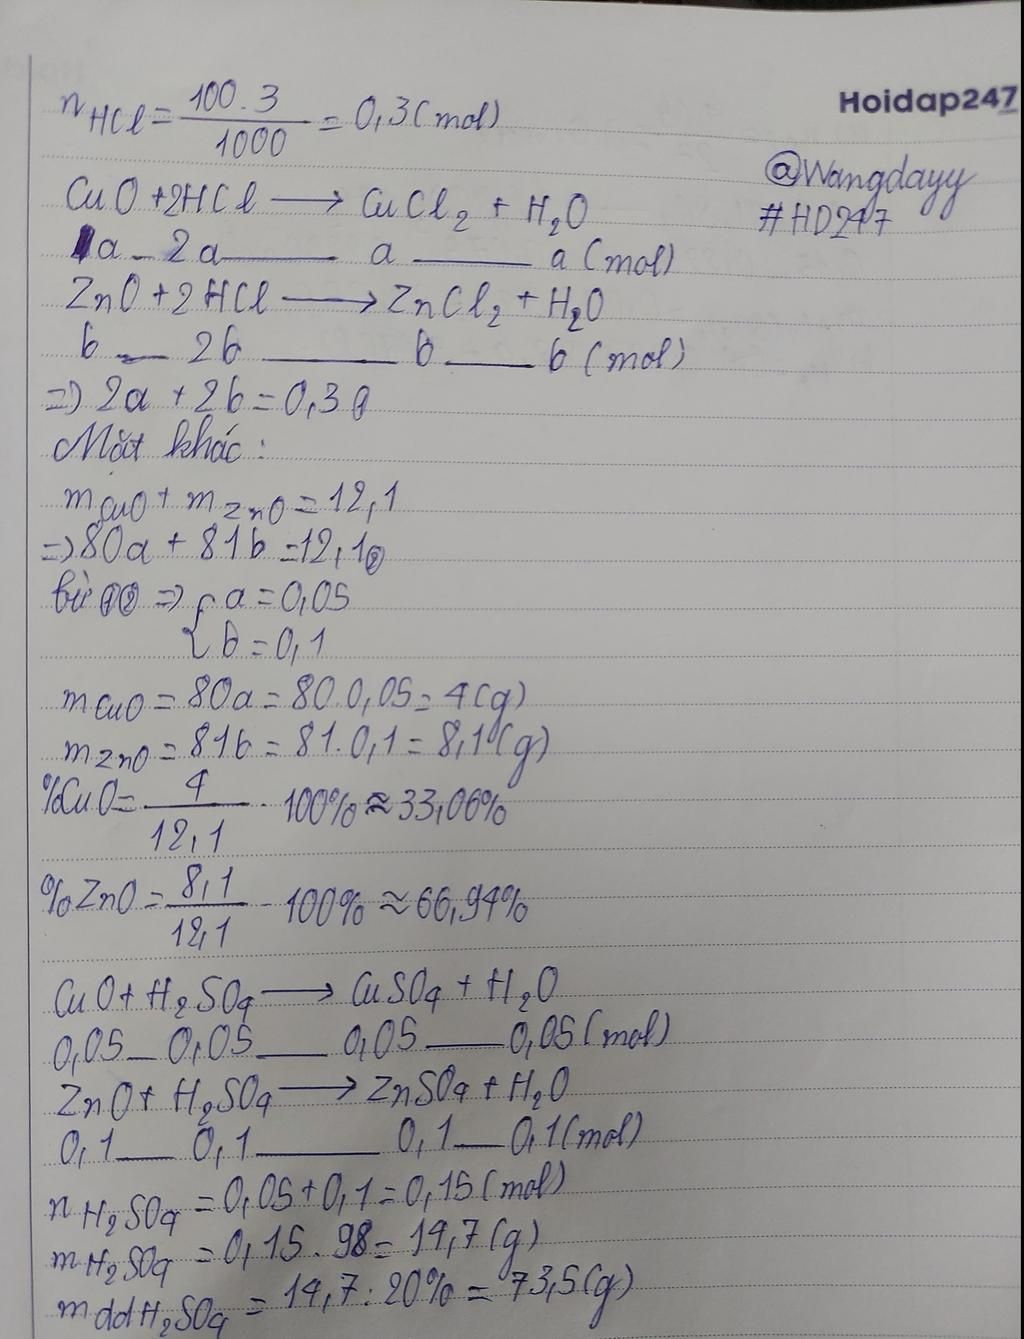 n HCl = 100.3 / 1000 = 0,3 (mol)
Hoidap247
@Wangdayy
#HD247
CuO + 2HCl ⟶ CuCl₂ + H₂O
a _ 2a ___ a ___ a (mol)
ZnO + 2HCl ⟶ ZnCl₂ + H₂O
b __ 2b ___ b ___ b (mol)
=> 2a + 2b = 0,3 ①
Mặt khác :
m CuO + m ZnO = 12,1
=> 80a + 81b = 12,1 ②
từ ①② => { a = 0,05
b = 0,1
m CuO = 80a = 80.0,05 = 4 (g)
m ZnO = 81b = 81.0,1 = 8,1 (g)
%CuO = 4 / 12,1 . 100% ≈ 33,06%
%ZnO = 8,1 / 12,1 . 100% ≈ 66,94%
CuO + H₂SO₄ ⟶ CuSO₄ + H₂O
0,05 _ 0,05 ___ 0,05 ___ 0,05 (mol)
ZnO + H₂SO₄ ⟶ ZnSO₄ + H₂O
0,1 __ 0,1 ___ 0,1 __ 0,1 (mol)
n H₂SO₄ = 0,05 + 0,1 = 0,15 (mol)
m H₂SO₄ = 0,15 . 98 = 14,7 (g)
m ddH₂SO₄ = 14,7 : 20% = 73,5 (g)